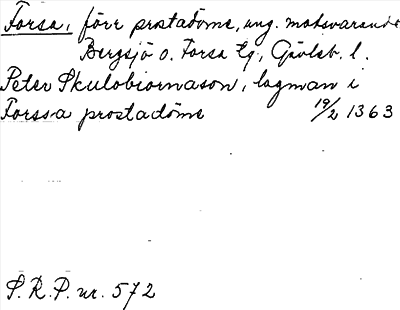 Forsa, förr prostadöme, ung. motsvarande
Bergsjö o. Forsa tg, Gävleb. l.
Peter Skulobiornason, lagman i
Forssa prostadöme 19/2 1363
S. R. P. nr. 572